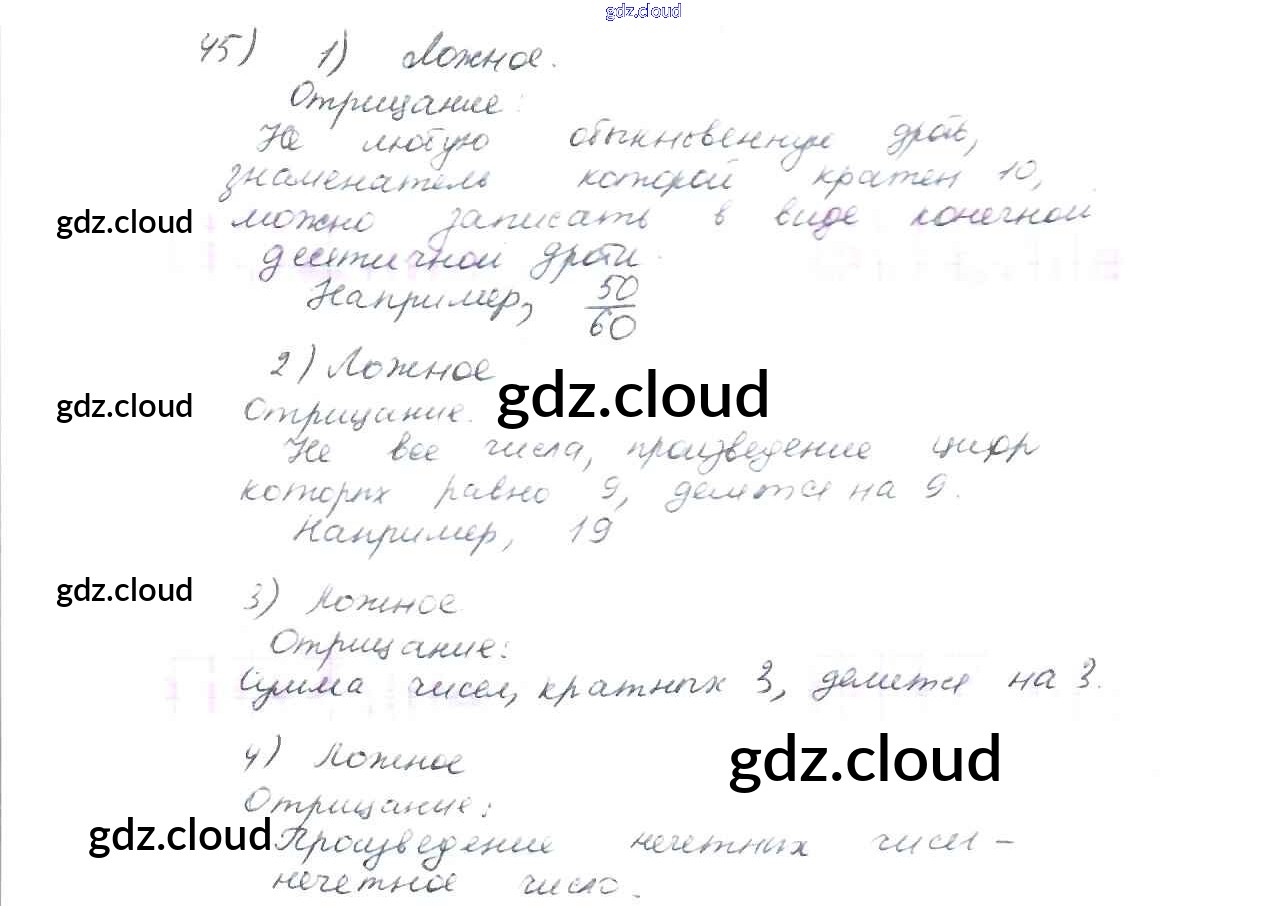 gdz.cloud
45) 1) Ложное.
Отрицание:
Не любую обыкновенную дробь,
знаменатель которой кратен 10,
gdz.cloud
можно записать в виде конечной
десятичной дроби.
Например, 50/60
2) Ложное
gdz.cloud
gdz.cloud
Отрицание.
Не все числа, произведение цифр
которых равно 9, делятся на 9.
Например, 19
gdz.cloud
3) Ложное
Отрицание:
Сумма чисел, кратных 3, делится на 3.
4) Ложное
gdz.cloud
Отрицание:
gdz.cloud
Произведение нечетных чисел –
нечетное число.